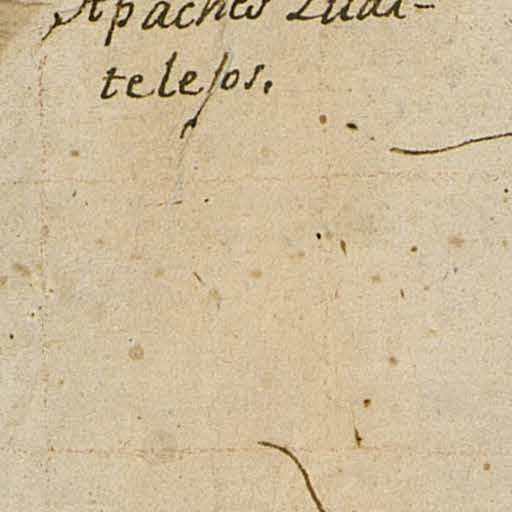 Apaches Quar-
telesos.